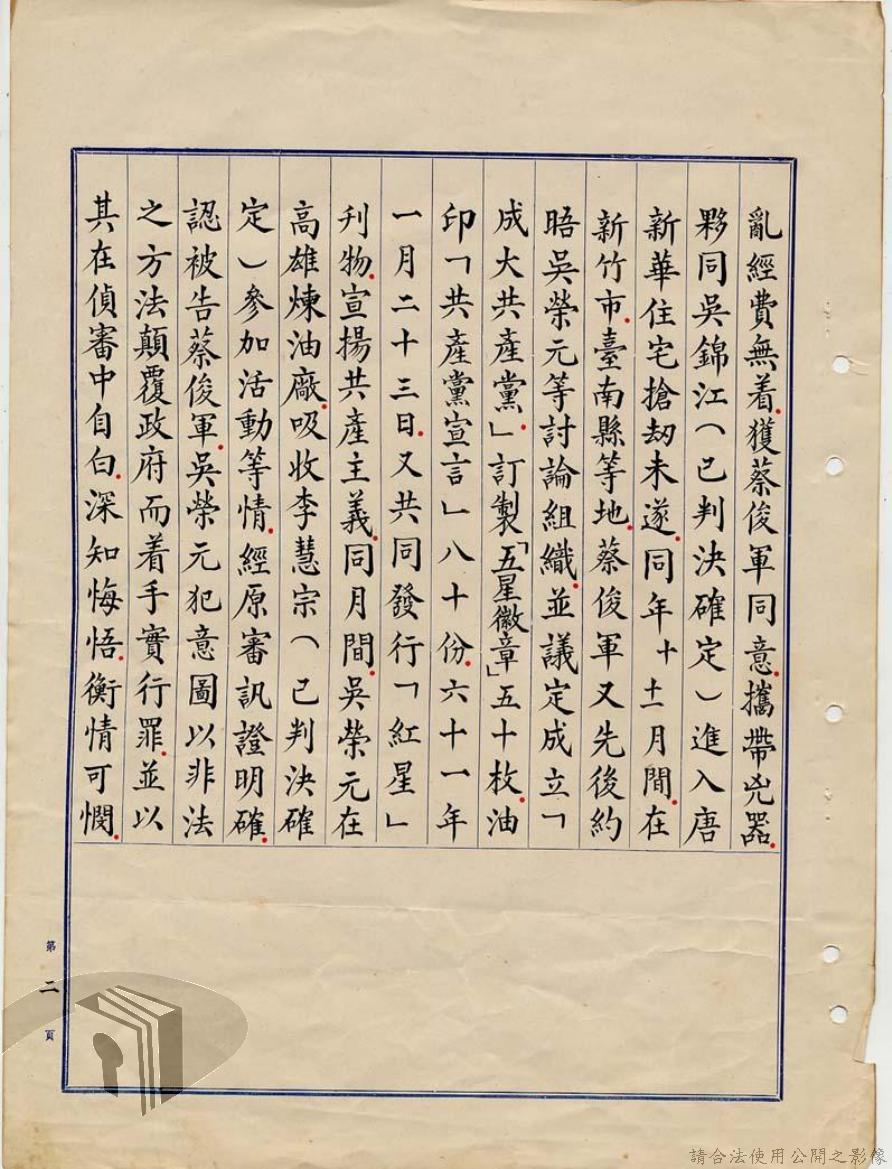 亂經費無着.獲蔡俊軍同意.攜帶兇器.
夥同吳錦江(已判決確定)進入唐
新華住宅搶刼未遂.同年十十一月間.在
新竹市.臺南縣等地.蔡俊軍又先後約
晤吳榮元等討論組織.並議定成立「
成大共產黨」.訂製「五星徽章」五十枚.油
印「共產黨宣言」八十份.六十一年
一月二十三日.又共同發行「紅星」
刋物.宣揚共產主義.同月間.吳榮元在
高雄煉油廠.吸收李慧宗(已判決確
定)參加活動等情.經原審訊證明確.
認被告蔡俊軍.吳榮元犯意圖以非法
之方法顛覆政府而着手實行罪.並以
其在偵審中自白.深知悔悟.衡情可憫.
第二頁
請合法使用公開之影像